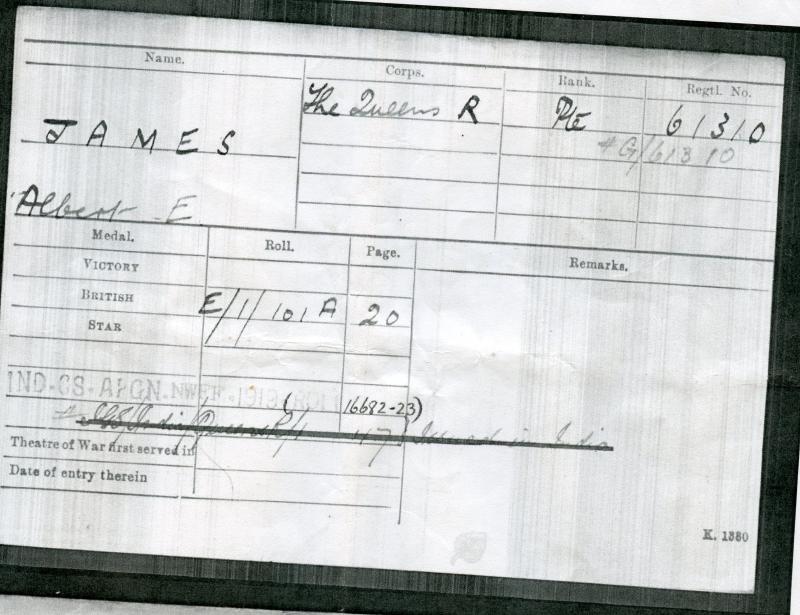 Name. Corps. Rank. Regtl. No.
The Queens R Pte 61310
JAMES # G/61310
Albert E
Medal. Roll. Page. Remarks.
VICTORY
BRITISH E/1/101 A 20
STAR
IND-GS-AFGN. NWFF. 1919 (16682-23)
India Queens 47 Issued in India
Theatre of War first served in
Date of entry therein
K. 1380